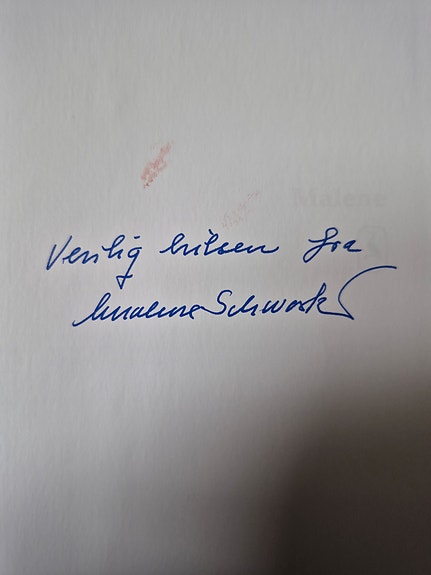 Venlig hilsen fra
Malene Schwartz
Malene